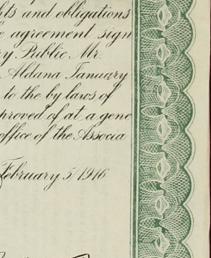 ts and obligations
e agreement sign
ry Public, Mr.
Aldana January
to the by laws of
proved of at a gene
office of the Associa
February 5 1916